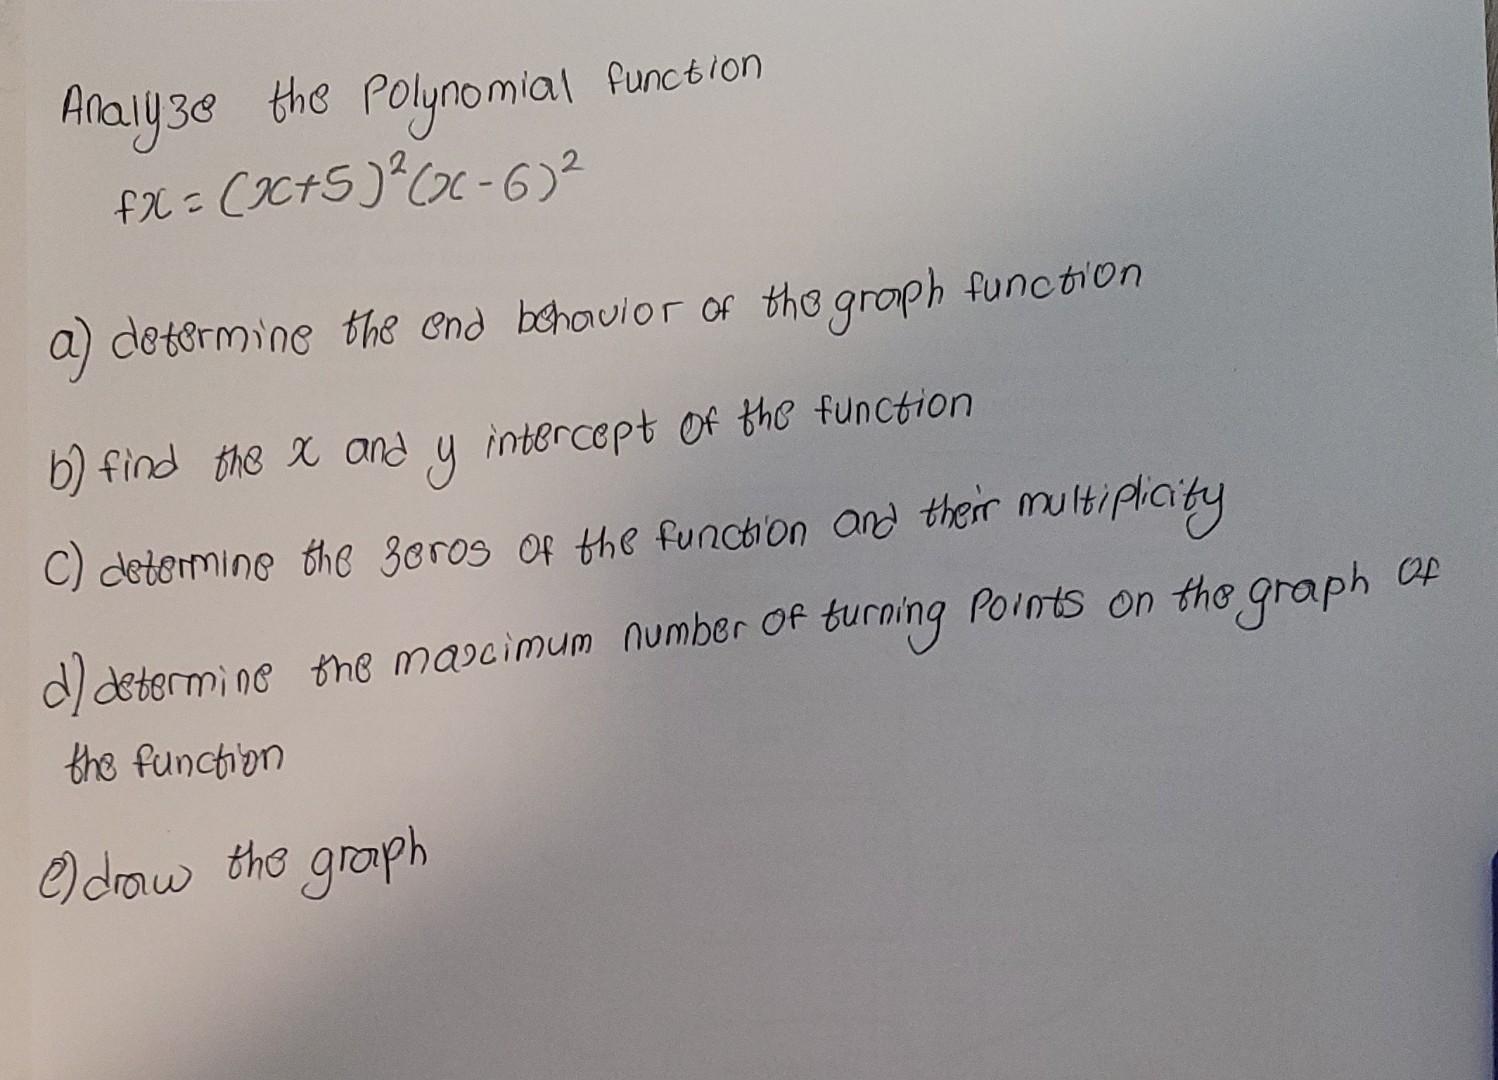 Analyze the Polynomial function
fx = (x+5)²(x-6)²
a) determine the end behavior of the graph function
b) find the x and y intercept of the function
c) determine the zeros of the function and their multiplicity
d) determine the maximum number of turning Points on the graph of
the function
e) draw the graph